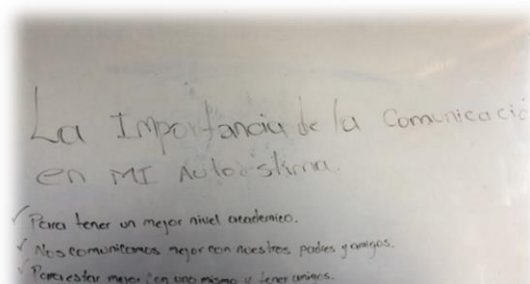 La Importancia de la Comunicació
en MI Autoestima.
✓ Para tener un mejor nivel academico.
✓ Nos comunicamos mejor con nuestros padres y amigos.
✓ Para estar mejor con uno mismo y tener amigos.